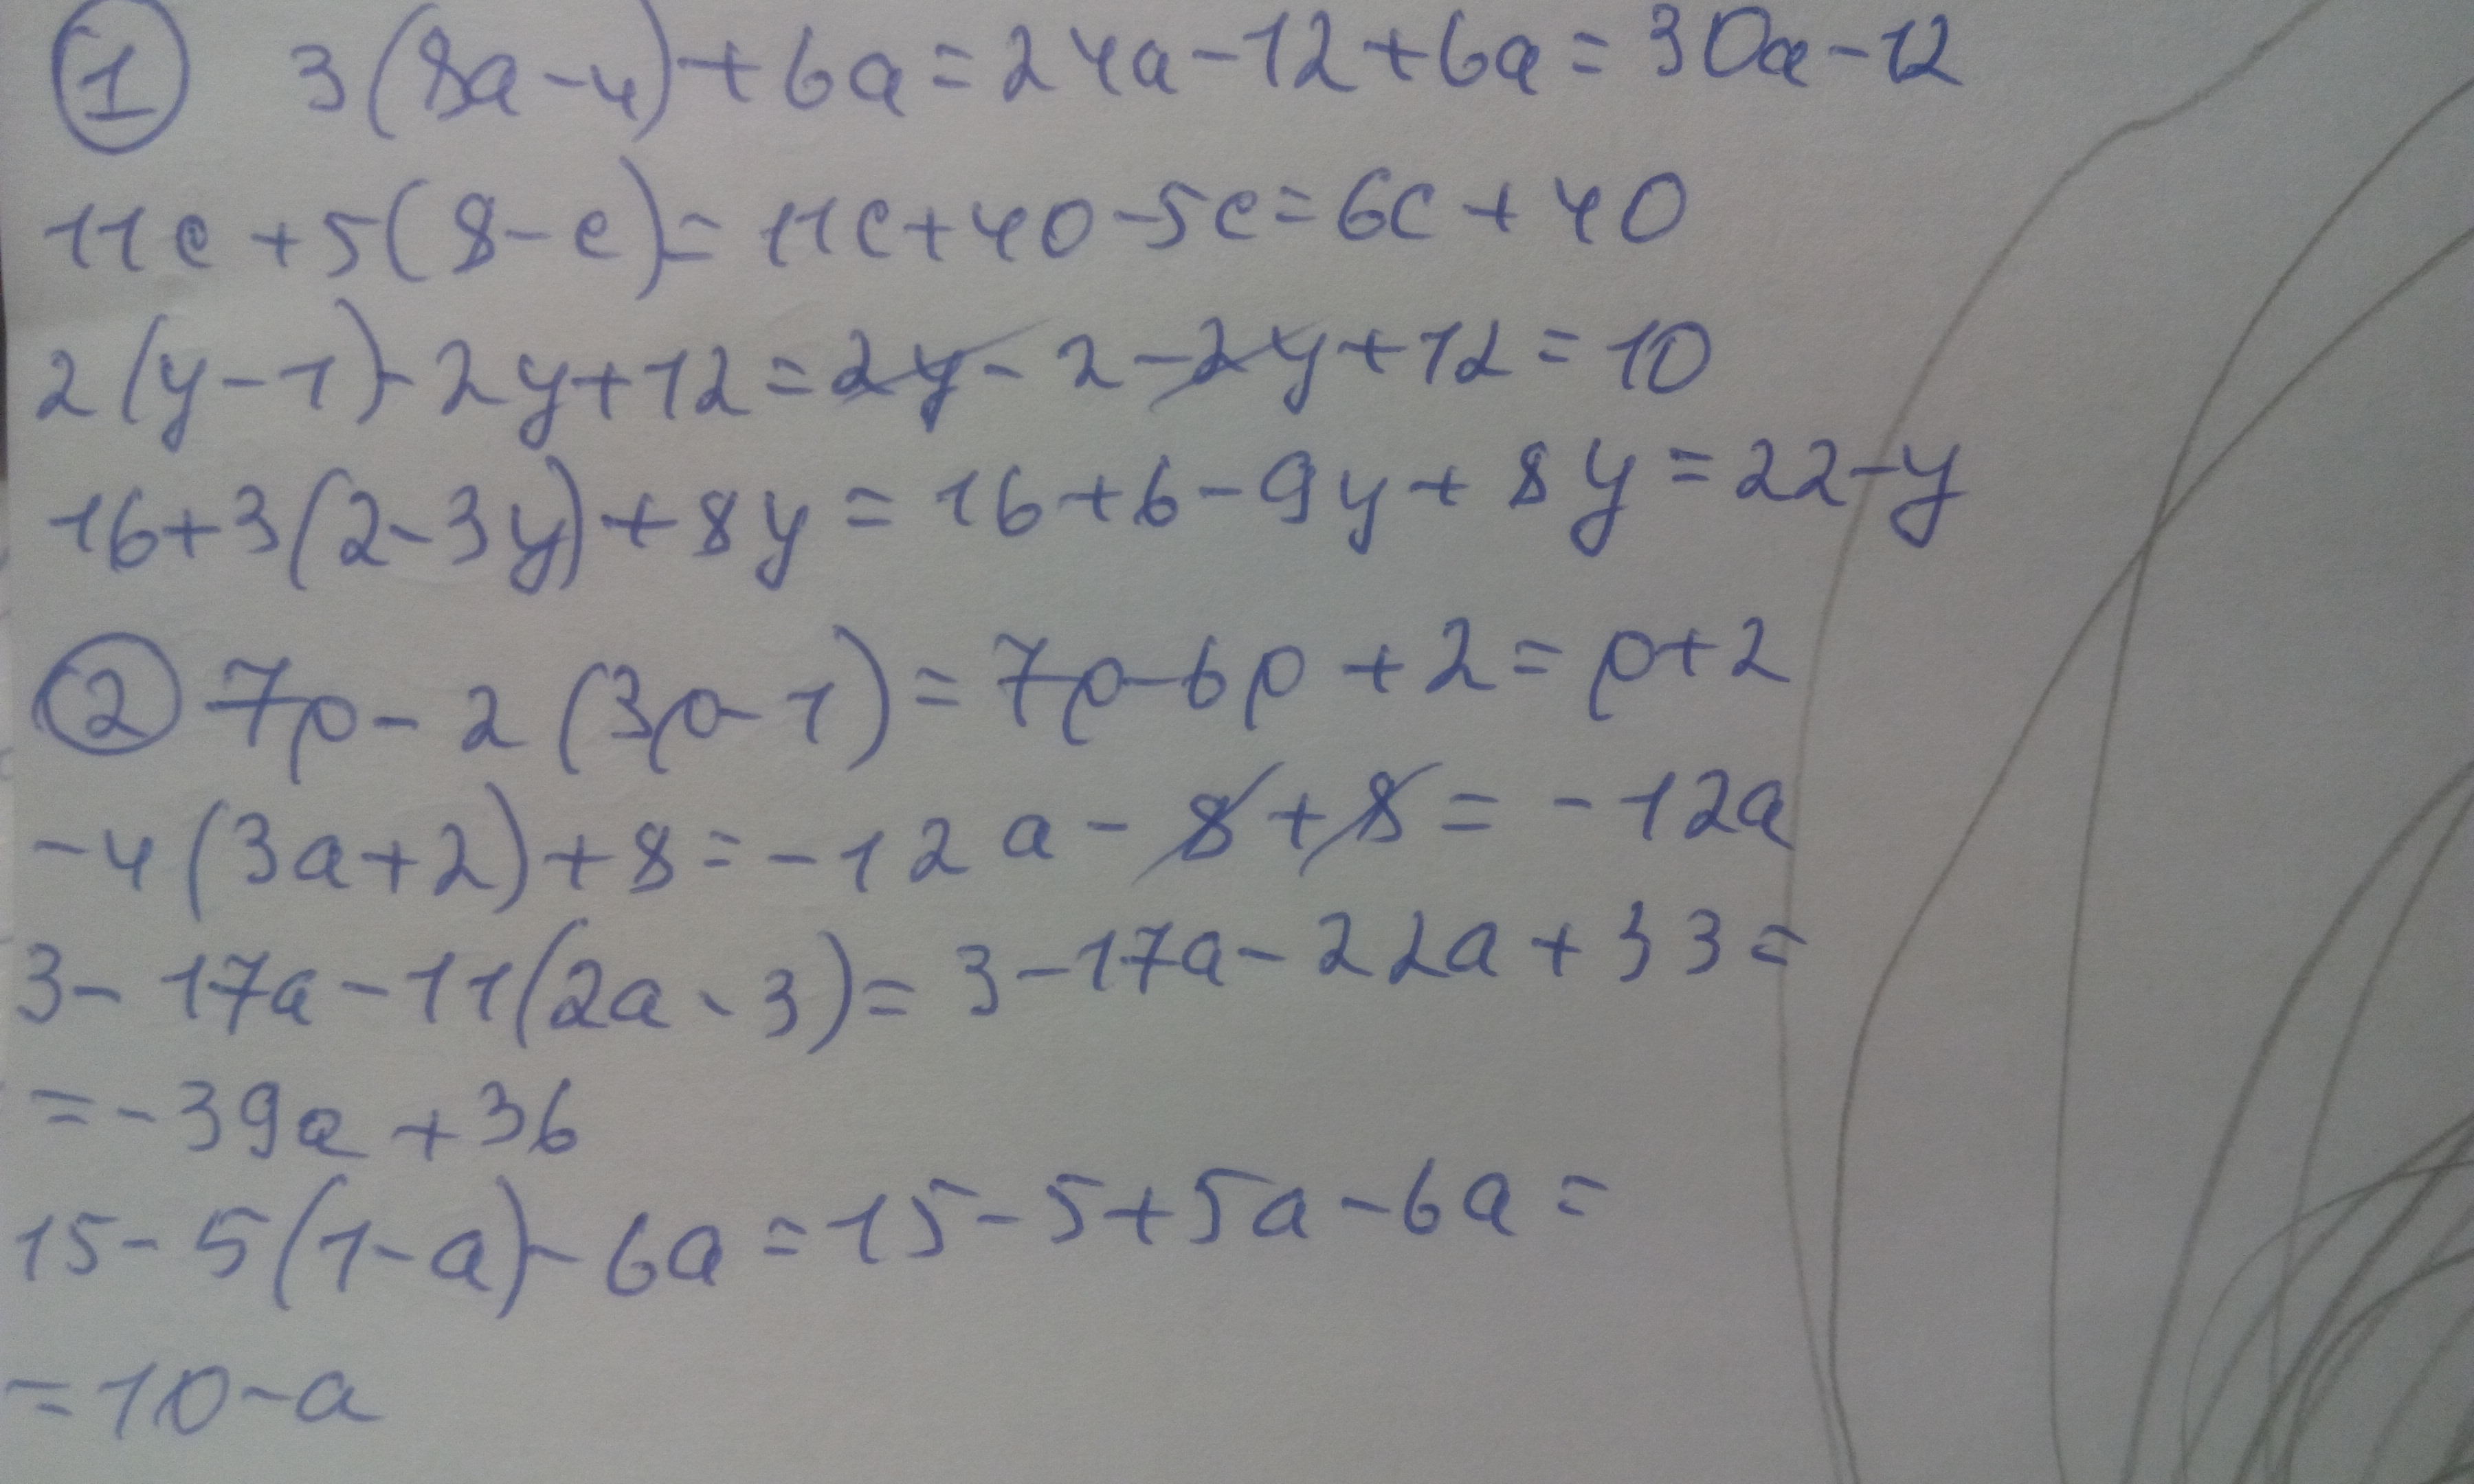 ① 3(8a-4)+6a=24a-12+6a=30a-12
11c+5(8-c)=11c+40-5c=6c+40
2(y-1)-2y+12=2y-2-2y+12=10
16+3(2-3y)+8y=16+6-9y+8y=22-y
② 7p-2(3p-1)=7p-6p+2=p+2
-4(3a+2)+8=-12a-8+8=-12a
3-17a-11(2a-3)=3-17a-22a+33=
=-39a+36
15-5(1-a)-6a=15-5+5a-6a=
=10-a